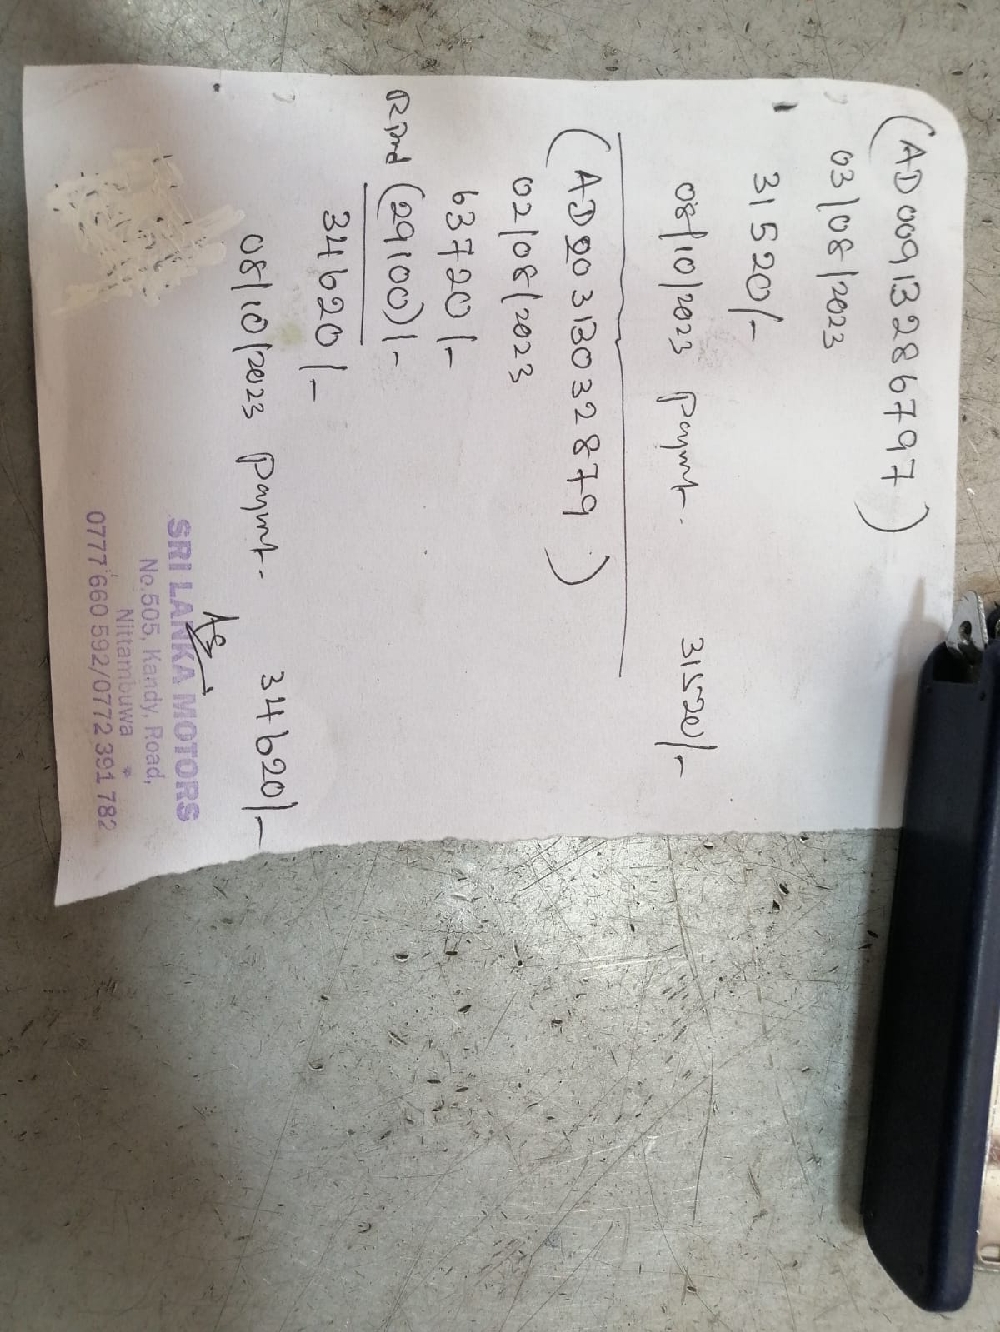 (AD009132 86797)
03/08/2023
31520/-
08/10/2023 Paymt. 31520/-
(AD203130 32879)
02/08/2023
63720/-
(29100)/-
34620/-
08/10/2023 Paymt. 34620/-
SRI LANKA MOTORS
No.505, Kandy, Road,
Nittambuwa
0777 660 592/0772 391 782